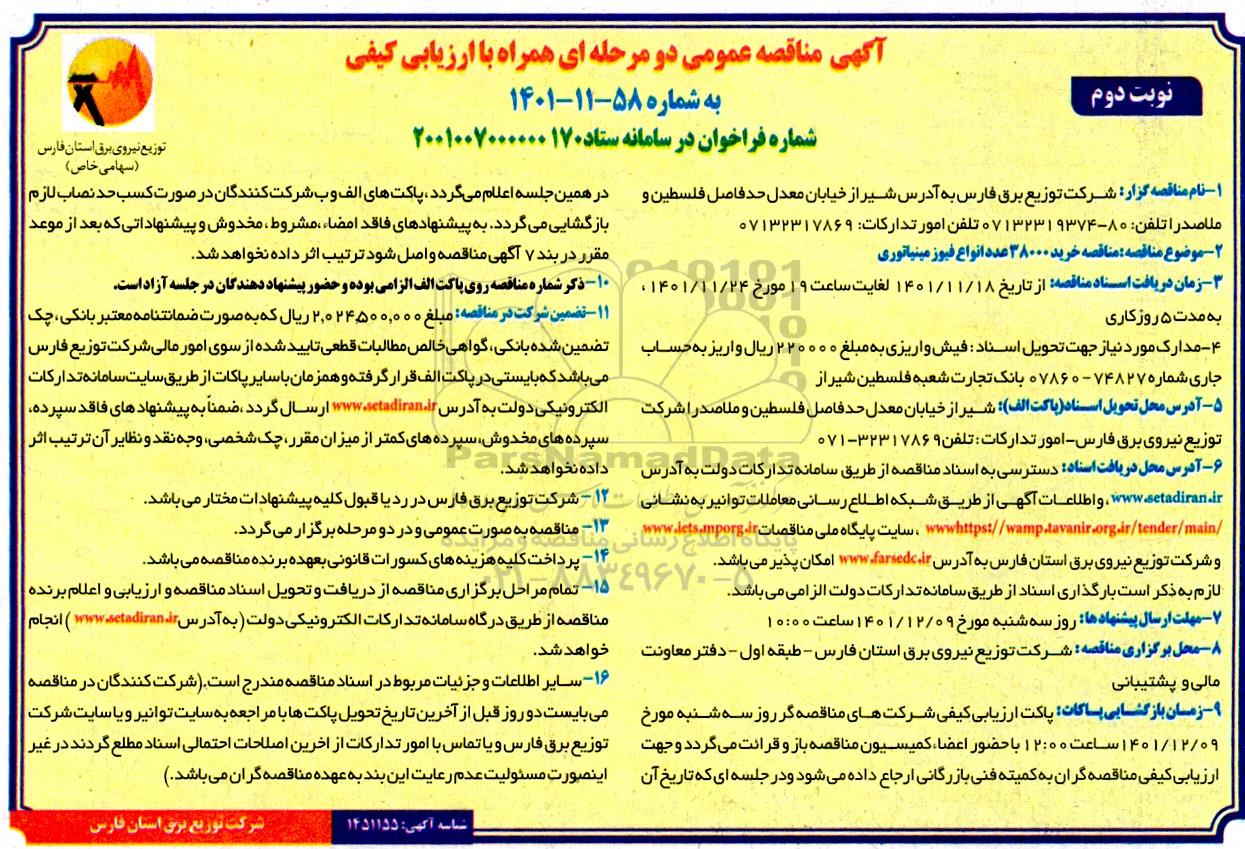 آگهی مناقصه عمومی دو مرحله ای همراه با ارزیابی کیفی
به شماره ۵۸-۱۱-۱۴۰۱
شماره فراخوان در سامانه ستاد ۲۰۰۱۰۰۷۰۰۰۰۰۰۱۷۰
نوبت دوم
توزیع نیروی برق استان فارس
(سهامی خاص)
۱-نام مناقصه گزار: شرکت توزیع برق فارس به آدرس شیراز خیابان معدل حدفاصل فلسطین و
ملاصدرا تلفن: ۸۰-۰۷۱۳۲۳۱۹۳۷۴ تلفن امور تدارکات: ۰۷۱۳۲۳۱۷۸۶۹
۲-موضوع مناقصه: مناقصه خرید ۳۸۰۰۰ عدد انواع فیوز مینیاتوری
۳-زمان دریافت اسناد مناقصه: از تاریخ ۱۴۰۱/۱۱/۱۸ لغایت ساعت ۱۹ مورخ ۱۴۰۱/۱۱/۲۴ ،
به مدت ۵ روز کاری
۴-مدارک مورد نیاز جهت تحویل اسناد: فیش واریزی به مبلغ ۲۲۰۰۰۰ ریال واریز به حساب
جاری شماره ۷۴۸۲۷-۰۷۸۶۰ بانک تجارت شعبه فلسطین شیراز
۵-آدرس محل تحویل اسناد(پاکت الف): شیراز خیابان معدل حدفاصل فلسطین و ملاصدرا شرکت
توزیع نیروی برق فارس-امور تدارکات: تلفن ۳۲۳۱۷۸۶۹-۰۷۱
۶-آدرس محل دریافت اسناد: دسترسی به اسناد مناقصه از طریق سامانه تدارکات دولت به آدرس
www.setadiran.ir ، واطلاعات آگهی از طریق شبکه اطلاع رسانی معاملات توانیر به نشانی
wwwhttps://wamp.tavanir.org.ir/tender/main/ ، سایت پایگاه ملی مناقصات www.iets.mporg.ir
و شرکت توزیع نیروی برق استان فارس به آدرس www.farsedc.ir امکان پذیر می باشد.
لازم به ذکر است بارگذاری اسناد از طریق سامانه تدارکات دولت الزامی می باشد.
۷-مهلت ارسال پیشنهاد ها: روز سه شنبه مورخ ۱۴۰۱/۱۲/۰۹ ساعت ۱۰:۰۰
۸-محل برگزاری مناقصه: شرکت توزیع نیروی برق استان فارس - طبقه اول - دفتر معاونت
مالی و پشتیبانی
۹-زمان بازگشایی پاکات: پاکت ارزیابی کیفی شرکت های مناقصه گر روز سه شنبه مورخ
۱۴۰۱/۱۲/۰۹ ساعت ۱۲:۰۰ با حضور اعضاء کمیسیون مناقصه باز و قرائت می گردد و جهت
ارزیابی کیفی مناقصه گران به کمیته فنی بازرگانی ارجاع داده می شود و در جلسه ای که تاریخ آن
در همین جلسه اعلام می گردد، پاکت های الف و ب شرکت کنندگان در صورت کسب حد نصاب لازم
بازگشایی می گردد. به پیشنهادهای فاقد امضاء، مشروط ، مخدوش و پیشنهاداتی که بعد از موعد
مقرر در بند ۷ آگهی مناقصه واصل شود ترتیب اثر داده نخواهد شد.
۱۰-ذکر شماره مناقصه روی پاکت الف الزامی بوده و حضور پیشنهاد دهندگان در جلسه آزاد است.
۱۱-تضمین شرکت در مناقصه: مبلغ ۲,۰۲۴,۵۰۰,۰۰۰ ریال که به صورت ضمانتنامه معتبر بانکی، چک
تضمین شده بانکی، گواهی خالص مطالبات قطعی تایید شده از سوی امور مالی شرکت توزیع فارس
می باشد که بایستی در پاکت الف قرار گرفته و همزمان با سایر پاکات از طریق سایت سامانه تدارکات
الکترونیکی دولت به آدرس www.setadiran.ir ارسال گردد ، ضمناً به پیشنهاد های فاقد سپرده،
سپرده های مخدوش، سپرده های کمتر از میزان مقرر، چک شخصی، وجه نقد و نظایر آن ترتیب اثر
داده نخواهد شد.
۱۲- شرکت توزیع برق فارس در رد یا قبول کلیه پیشنهادات مختار می باشد.
۱۳- مناقصه به صورت عمومی و در دو مرحله برگزار می گردد.
۱۴- پرداخت کلیه هزینه های کسورات قانونی بعهده برنده مناقصه می باشد.
۱۵- تمام مراحل برگزاری مناقصه از دریافت و تحویل اسناد مناقصه و ارزیابی و اعلام برنده
مناقصه از طریق درگاه سامانه تدارکات الکترونیکی دولت (به آدرس www.setadiran.ir ) انجام
خواهد شد.
۱۶-سایر اطلاعات و جزئیات مربوط در اسناد مناقصه مندرج است.(شرکت کنندگان در مناقصه
می بایست دو روز قبل از آخرین تاریخ تحویل پاکت ها با مراجعه به سایت توانیر و یا سایت شرکت
توزیع برق فارس و یا تماس با امور تدارکات از اخرین اصلاحات احتمالی اسناد مطلع گردند در غیر
اینصورت مسئولیت عدم رعایت این بند به عهده مناقصه گران می باشد.)
شناسه آگهی: ۱۴۵۱۱۵۵
شرکت توزیع برق استان فارس
ParsNamadData
پایگاه اطلاع رسانی مناقصه و مزایده
۰۲۱-۸۸۳۴۹۶۷۰-۵